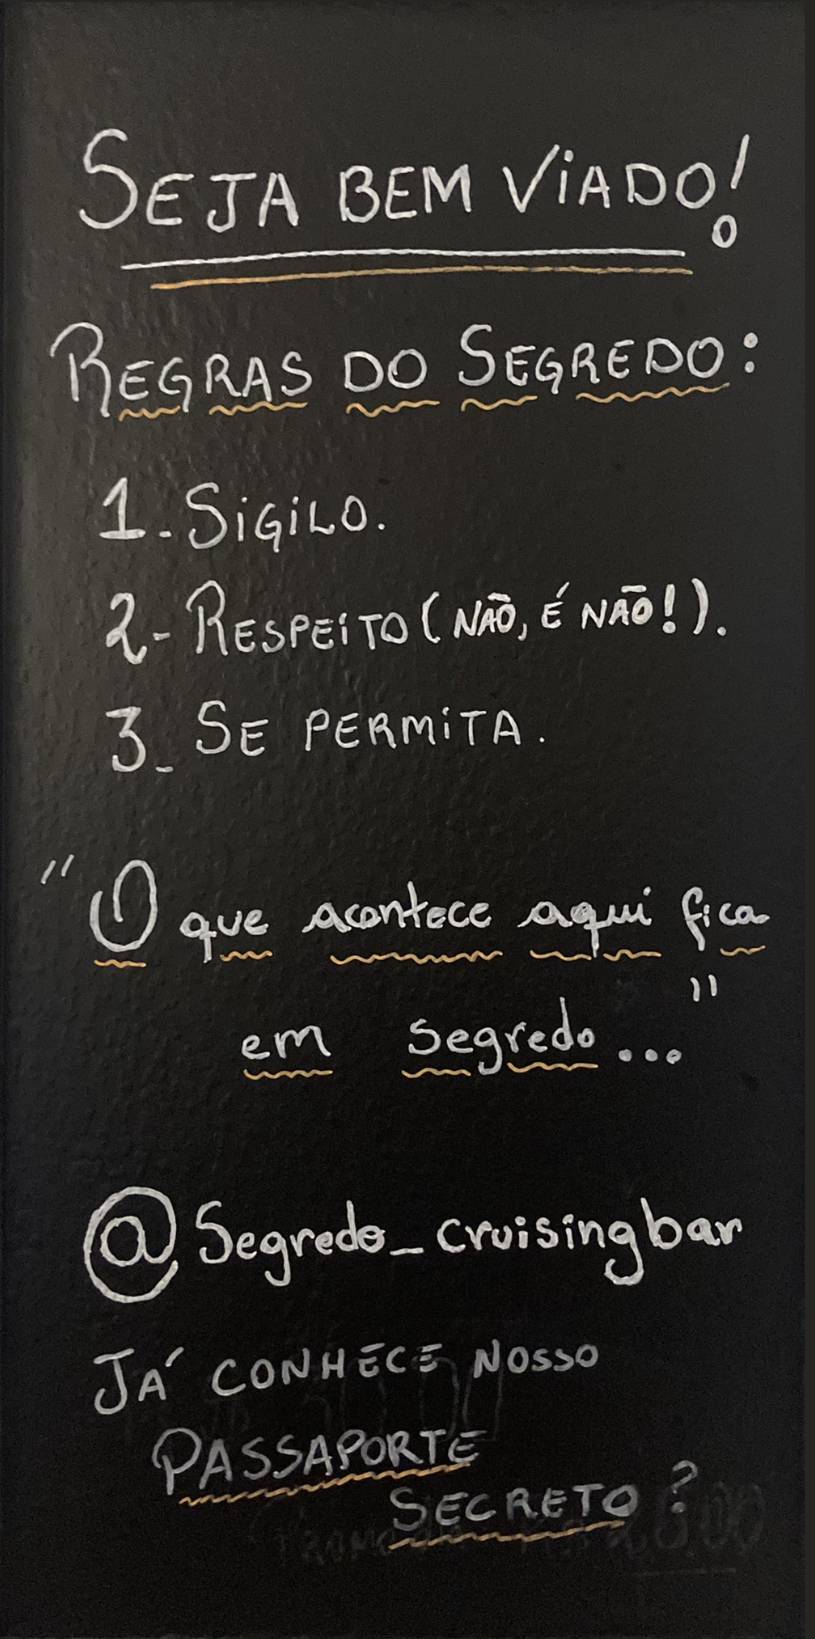 SEJA BEM VIADO!
REGRAS DO SEGREDO:
1. SIGILO.
2- RESPEITO (NÃO, É NÃO!).
3_ SE PERMITA.
"O que acontece aqui fica
em segredo..."
@Segredo_cruisingbar
JÁ CONHECE NOSSO
PASSAPORTE
SECRETO?